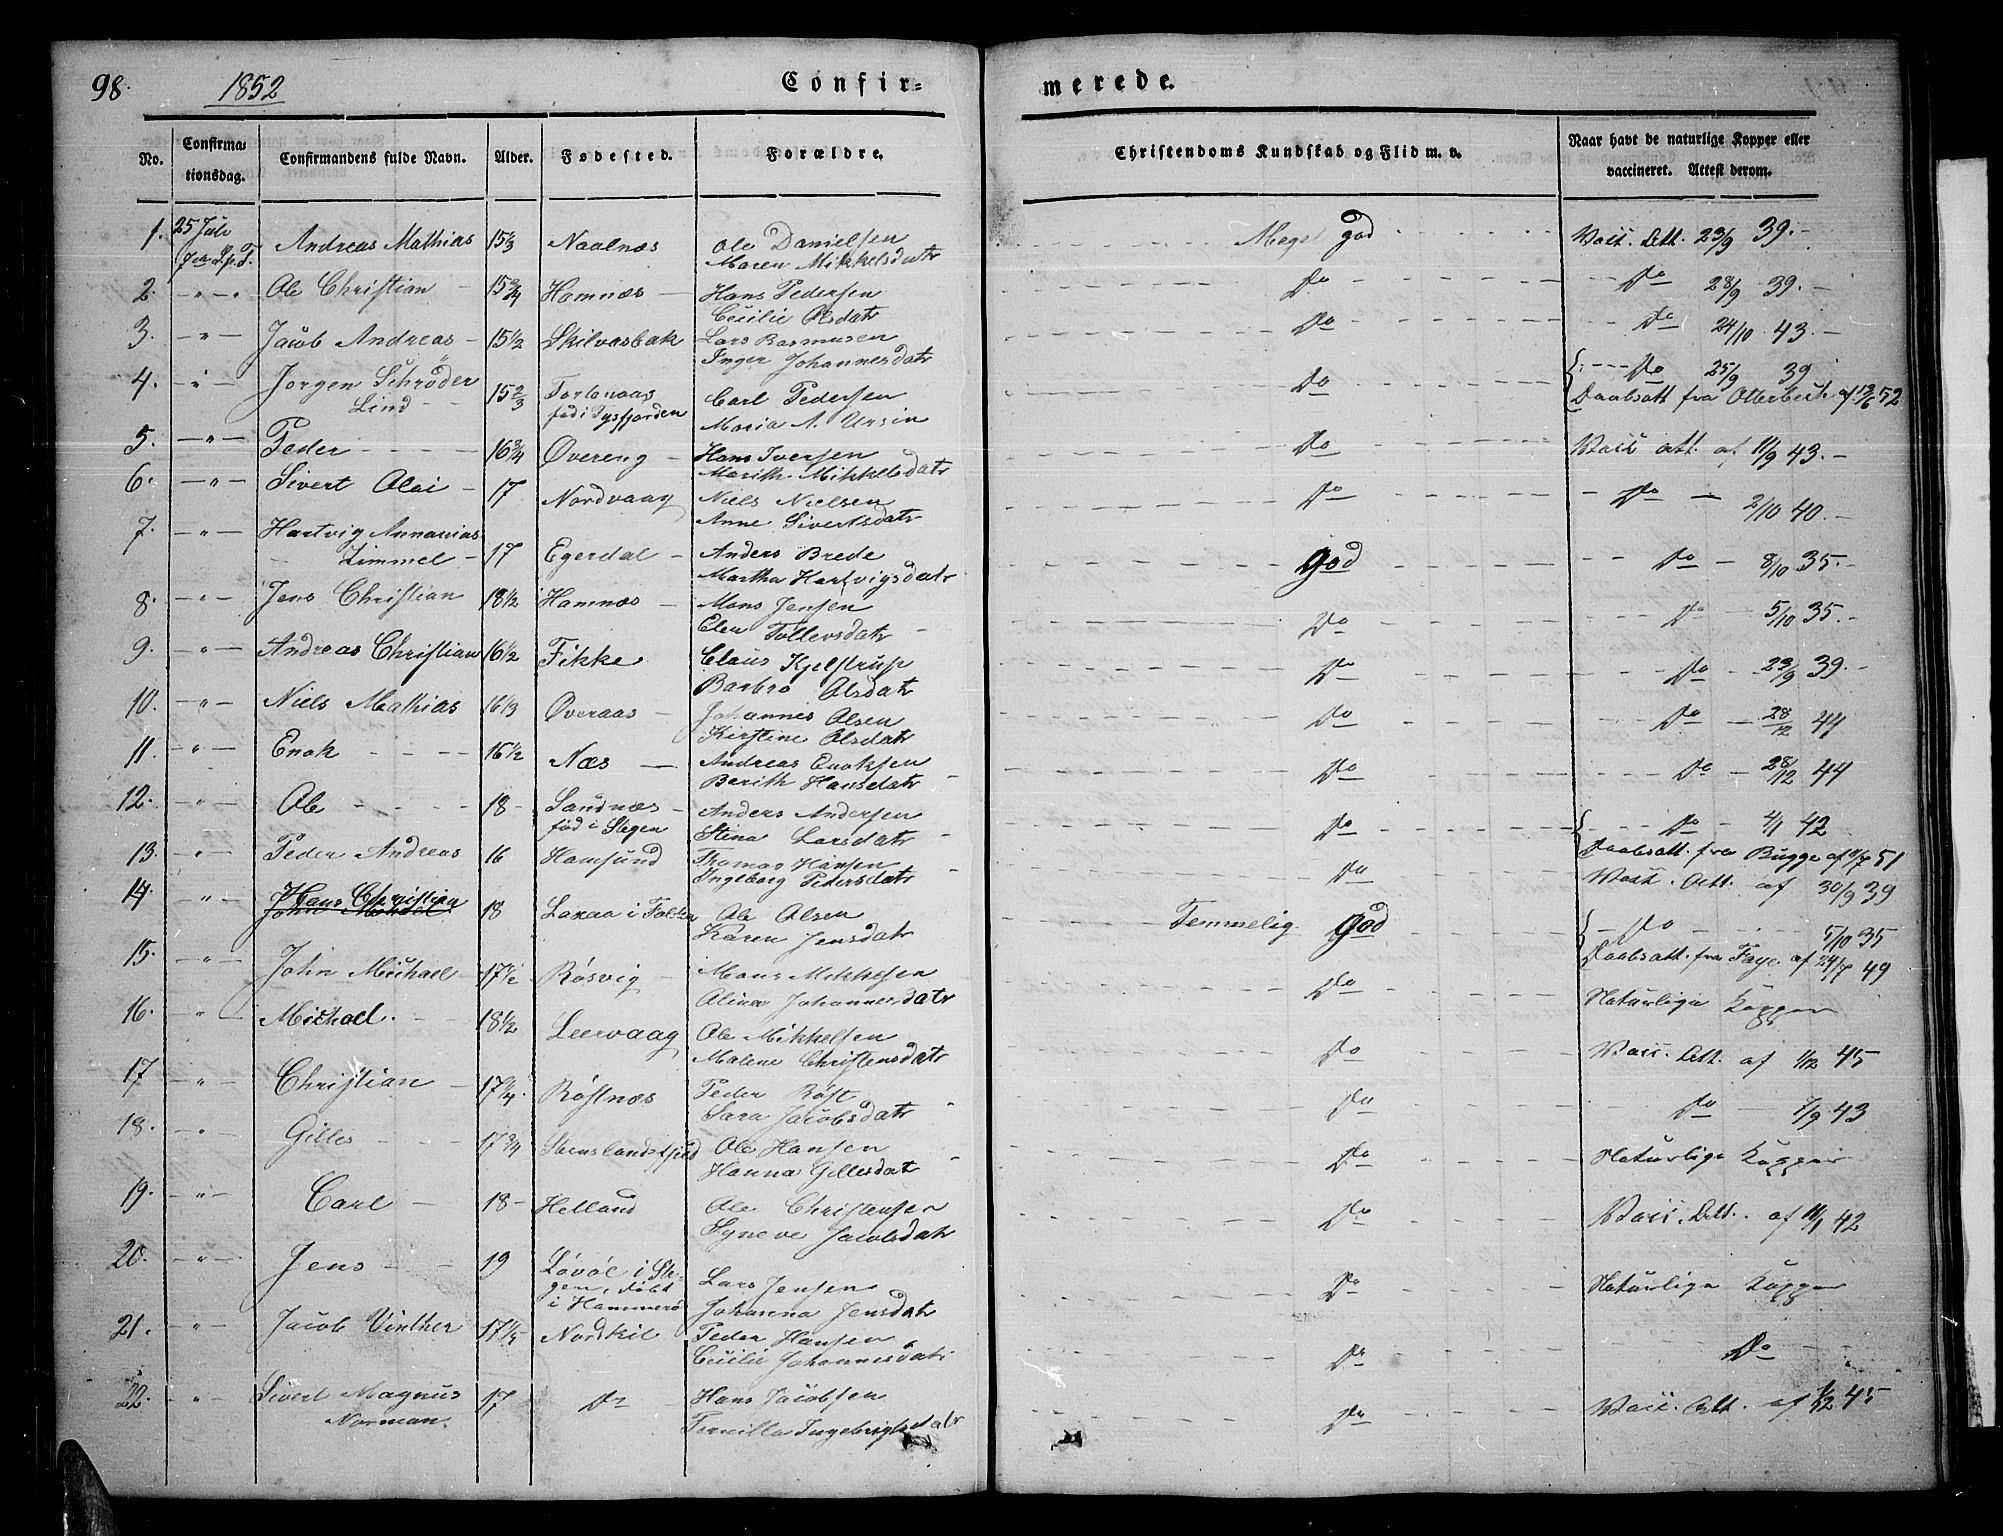 98. 1852 Confir= merede.
No. Confirma- tionsdag. Confirmandens fulde Navn. Alder. Fødested. Forældre. Christendoms Kundskab og Flid m. v. Naar havt de naturlige Kopper eller vaccineret. Attest derom.
1. 25 Juli Andreas Mathias 15⅓ Naalnæs Ole Danielsen Meget god Vacc. Att. 23/9 39.
Maren Mikkelsdatr
2. Ole Christian 15¾ Hamnæs Hans Pedersen Do Do 28/9 39.
Cecilie Olsdatr
3. Jacob Andreas 15½ Skilvasbak Lars Rasmusen Do Do 24/10 43.
Inger Johannesdatr
4. Jørgen Schrøder 15⅔ Carl Pedersen Do Do 25/9 39
Lind fød i Tysfjorden Maria A. Ursin Daabsatt fra Otterbech af 13/6 52
5. Peder 16¾ Øvereng Hans Iversen Do Vacc att. af 11/9 43.
Marith Mikkelsdatr
6. Sivert Olai 17 Nordvaag Niels Nielsen Do Do 2/10 40.
Anne Sivertsdatr
7. Hartvig Annanias
Zimmel 17 Egerdal Anders Brede god Do 8/10 35.
Martha Hartvigsdatr
8. Jens Christian 18½ Hamnæs Mons Jensen Do Do 5/10 35.
Elen Tollevsdatr
9. Andreas Christian 16½ Fikke Claus Kjelstrup Do Do 23/9 39.
Barbro Olsdatr
10. Niels Mathias 16⅓ Øveraas Johannes Olsen Do Do 28/12 44
Kirstine Olsdatr
11. Enok 16½ Næs Andreas Enoksen Do Do 28/12 44
Berith Hansdatr
12. Ole 18 Sandnæs Anders Andersen Do Do 4/1 42
fød i Stegen Stina Larsdatr Daabsatt. fra Bugge af 11/7 51
13. Peder Andreas 16 Hamsund Thomas Hansen Do Vacc. Att. af 30/9 39
Ingeborg Pedersdatr
14. Hans Christian 18 i Folden Ole Olsen Temmelig god Do 5/10 35
Karen Jensdatr Daabsatt. fra Faye af 24/7 49
15. John Michael 17½ Røsvig Mons Mikkelsen Do Naturlige Kopper
Alina Johannesdatr
16. Michael 18½ Leervaag Ole Mikkelsen Do Vacc. Att. af 1/12 45
Malene Christensdatr
17 Christian 17¼ Røstnæs Peder Røst Do Do 7/9 43
Sara Jacobsdatr
18. Gilles 17¾ Steenslandsfjeld Ole Hansen Do Naturlige Kopper
Hanna Gillesdat
19. Carl 18 Helland Ole Christensen Do Vacc. Att. af 11/1 42
Syneve Jacobsdatr
20. Jens 19 Løvøe i Ste- Lars Jensen Do Naturlige Kopper
gen, døbt
i Hammerø Johanna Jensdatr
21. Jacob Vinther 17⅕ Nordkil Peder Hansen Do Do
Cecilie Johannesdatr
22. Sivert Magnus 17 Do Hans Jacobsen Do Vacc. Att. af 1/2 45
Norman. Ingebrigtsdatr